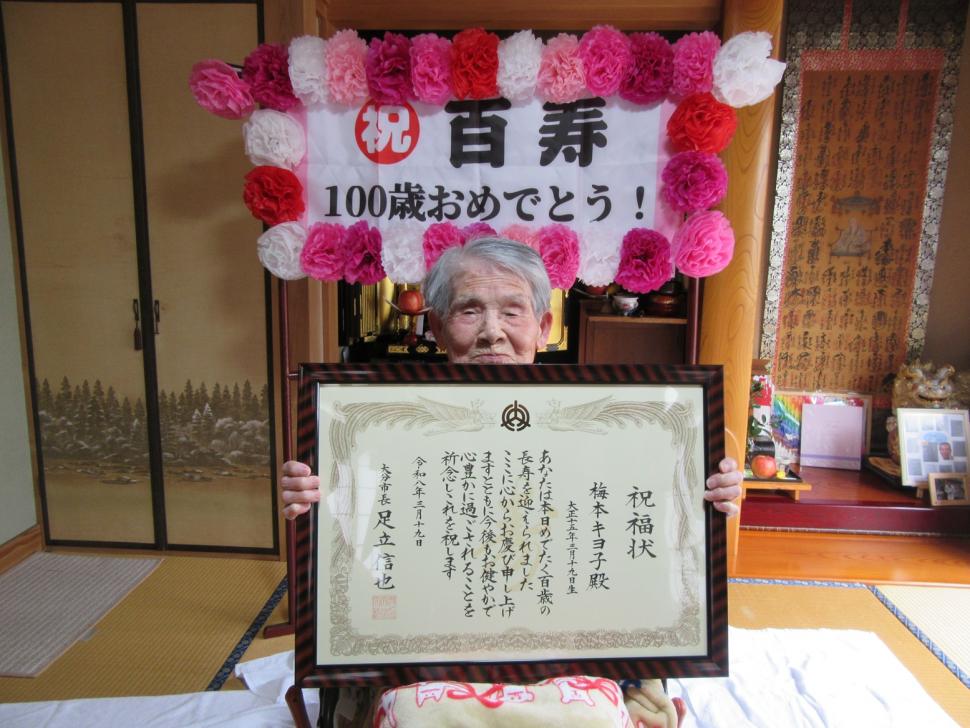 祝 百寿
100歳おめでとう！
祝福状
梅本キヨ子殿
大正十五年三月十九日生
あなたは本日めでたく百歳の
長寿を迎えられました
ここに心からお慶び申し上げ
ますとともに今後もお健やかで
心豊かに過ごされることを
祈念しこれを祝します
令和八年三月十九日
大分市長 足立信也